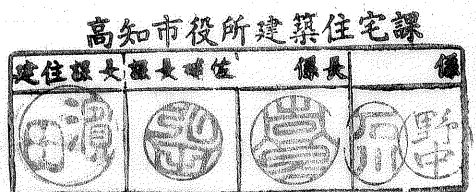 高知市役所建築住宅課
建住課長 課長補佐 係長 係
濱田 石川 野中